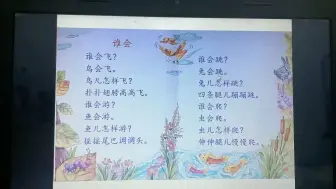 谁会
谁会飞？
鸟会飞。
鸟儿怎样飞？
扑扑翅膀高高飞。
谁会游？
鱼会游。
鱼儿怎样游？
摇摇尾巴调调头。
谁会跳？
兔会跳。
兔儿怎样跳？
四条腿儿蹦蹦跳。
谁会爬？
虫会爬。
虫儿怎样爬？
伸伸腿儿慢慢爬。